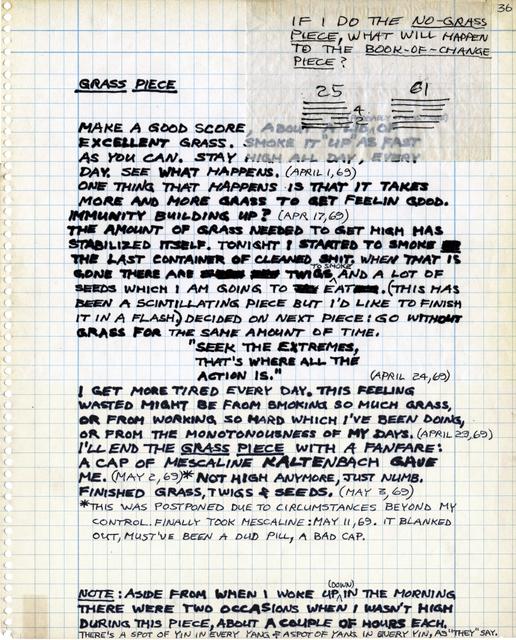 36
IF I DO THE NO-GRASS
PIECE, WHAT WILL HAPPEN
TO THE BOOK-OF-CHANGE
PIECE?
25 61
4
2
GRASS PIECE
MAKE A GOOD SCORE, ABOUT A LB. OF
EXCELLENT GRASS. SMOKE IT "UP" AS FAST
AS YOU CAN. STAY HIGH ALL DAY, EVERY
DAY. SEE WHAT HAPPENS. (APRIL 1, 69)
ONE THING THAT HAPPENS IS THAT IT TAKES
MORE AND MORE GRASS TO GET FEELIN GOOD.
IMMUNITY BUILDING UP? (APR 17, 69)
THE AMOUNT OF GRASS NEEDED TO GET HIGH HAS
STABILIZED ITSELF. TONIGHT I STARTED TO SMOKE
THE LAST CONTAINER OF CLEANED SHIT. WHEN THAT IS
GONE THERE ARE TWIGS TO SMOKE AND A LOT OF
SEEDS WHICH I AM GOING TO EAT. (THIS HAS
BEEN A SCINTILLATING PIECE BUT I'D LIKE TO FINISH
IT IN A FLASH) DECIDED ON NEXT PIECE: GO WITHOUT
GRASS FOR THE SAME AMOUNT OF TIME.
"SEEK THE EXTREMES,
THAT'S WHERE ALL THE
ACTION IS." (APRIL 24, 69)
I GET MORE TIRED EVERY DAY. THIS FEELING
WASTED MIGHT BE FROM SMOKING SO MUCH GRASS,
OR FROM WORKING SO HARD WHICH I'VE BEEN DOING,
OR FROM THE MONOTONOUSNESS OF MY DAYS. (APRIL 29, 69)
I'LL END THE GRASS PIECE WITH A FANFARE:
A CAP OF MESCALINE KALTENBACH GAVE
ME. (MAY 2, 69)* NOT HIGH ANYMORE, JUST NUMB.
FINISHED GRASS, TWIGS & SEEDS. (MAY 3, 69)
*THIS WAS POSTPONED DUE TO CIRCUMSTANCES BEYOND MY
CONTROL. FINALLY TOOK MESCALINE: MAY 11, 69. IT BLANKED
OUT, MUST'VE BEEN A DUD PILL, A BAD CAP.
NOTE: ASIDE FROM WHEN I WOKE UP (DOWN) IN THE MORNING
THERE WERE TWO OCCASIONS WHEN I WASN'T HIGH
DURING THIS PIECE, ABOUT A COUPLE OF HOURS EACH.
THERE'S A SPOT OF YIN IN EVERY YANG & A SPOT OF YANG IN EVERY YIN AS "THEY" SAY.